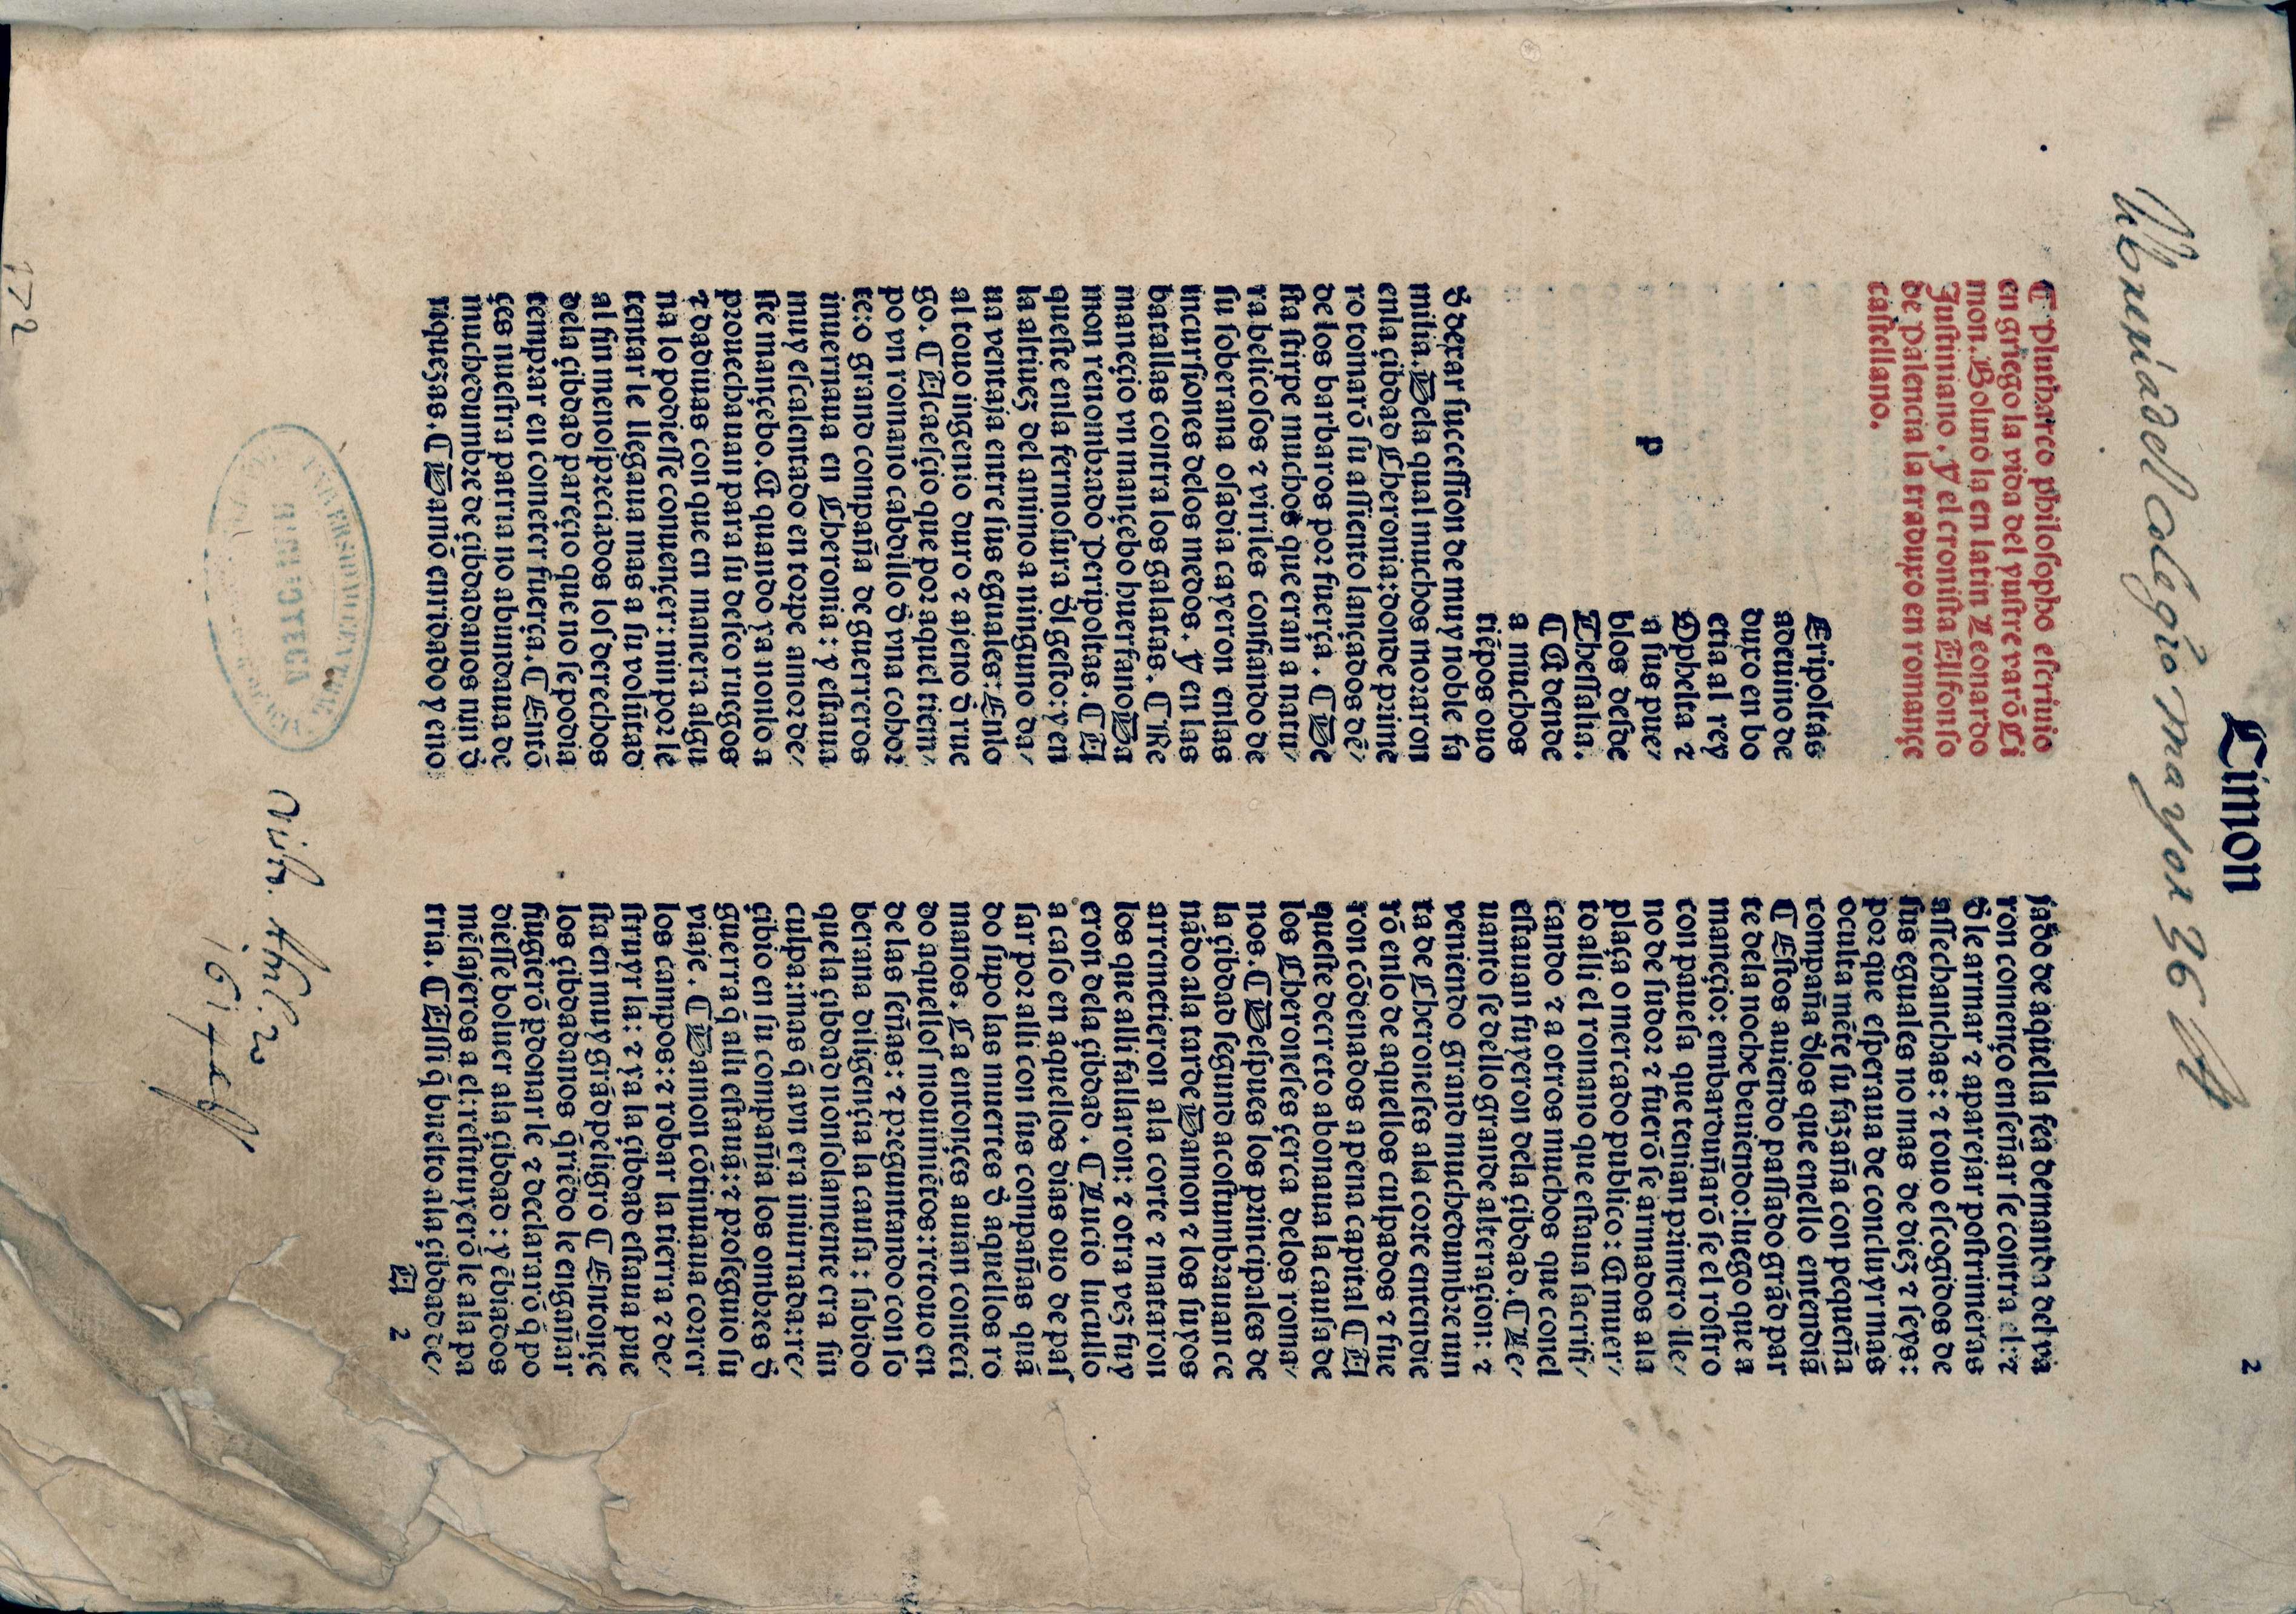 Cimon
2
Librería del Colegio mayor 36
⁋ Plutharco philosopho escriuio
en griego la vida del yllustre varō Ci
mon. Boluio la en latin Leonardo
Justiniano. Y el cronista Alfonso
de palencia la traduxo en romançe
castellano.
p
Eripoltas
adeuino de
duxo en bo
ecia al rey
Ophelta ⁊
a sus pue⸗
blos desde
Thessalia.
⁋ A dende
a muchos
tiēpos ouo
d̄ dexar succession de muy noble fa
milia. Dela qual muchos moraron
enla çibdad Cheronia: donde prime
ro tomarō su assiento lançados dē⸗
de los barbaros por fuerça. ⁋ De
sta stirpe muchos que eran a natu⸗
ra belicosos ⁊ viriles confiando de
su soberana osadia cayeron enlas
incursiones delos medos. Y en las
batallas contra los galatas. ⁋ Re
maneçio vn mançebo huerfano Da
mon renombrado peripoltas. ⁋ El
queste enla fermosura d̄l gesto: y en
la altiuez del animo a ninguno da⸗
ua ventaja entre sus eguales. Enlo
al touo ingenio duro ⁊ ajeno d̄ rue
go. ⁋ Acaesçio que por aquel tiem⸗
po vn romano cabdillo d̄ vna cohor
te: o grand compaña de guerreros
inuernaua en Cheronia: y estaua
muy escalentado en torpe amor de⸗
ste mançebo. E quando ya nonlo a
prouechauan para su deseo ruegos
⁊ dadiuas con que en manera algu
na lo podiesse conuençer: nin por le
tentar le llegaua mas a su volūtad
al fin menospreciados los derechos
dela çibdad pareçio que no se podia
temprar en cometer fuerça. ⁋ Entō
çes nuestra patria no abundaua de
muchedumbre de çibdadanos nin d̄
riquezas. ⁋ Damō enridado y eno
jado de aquella fea demanda del vā
ron començo enseñar se contra el: ⁊
d̄le armar ⁊ aparejar postrimeras
assechanchas: ⁊ touo escogidos de
sus eguales no mas de diez ⁊ seys:
por que esperaua de concluyr mas
oculta mēte su fazaña con pequeña
compaña d̄los que enello entendiā
⁋ Estos auiendo passado grād par
te dela noche beuiendo: luego que a
maneçio: embarduñarō se el rostro
con pauesa que tenian primero lle⸗
no de sudor ⁊ fuerō se armados ala
plaça o mercado publico: E muer⸗
to alli el romano que estaua sacrifi⸗
cando ⁊ a otros muchos que conel
estauan fuyeron dela çibdad. ⁋ Le⸗
uanto se dello grande alteraçion: ⁊
veniendo grand muchedumbre un
ta de Cheroneses ala corte entendie
rō enlo de aquellos culpados ⁊ fue
ron cōdenados a pena capital ⁋ El
queste decreto abonaua la causa de
los Cheroneses çerca delos roma⸗
nos. ⁋ Despues los principales de
la çibdad segund acostumbrauan ce
nādo ala tarde Damon ⁊ los suyos
arremetieron ala corte ⁊ mataron
los que alli fallaron: ⁊ otra vez fuy
eron dela çibdad. ⁋ Lucio lucullo
a caso en aquellos dias ouo de pas
sar por alli con sus compañas quā
do supo las muertes d̄ aquellos ro
manos. La entonçes auian conteci
do aquellos mouimiētos: retouo en
de las señas: ⁊ preguntando con so
berana diligençia la causa: sabido
quela çibdad nonsolamente era sin
culpa: mas q̄ avn era iniurriada: re⸗
cibio en su compañia los ombres d̄
guerra q̄ alli estauā: ⁊ proseguio su
viaje. ⁋ Damon cōtinuaua correr
los campos: ⁊ robar la tierra ⁊ de⸗
struyr la: ⁊ ya la çibdad estaua pue
sta en muy grād peligro ⁋ Entonçe
los çibdadanos q̄riēdo le engañar
fingierō p̄donar le ⁊ declararō q̄ po
diesse boluer ala çibdad: y ēbiados
mēsajeros a el: restituyerō le ala pa
tria. ⁋ Assi q̄ buelto ala çibdad de⸗
A 2
Abril. 20
172